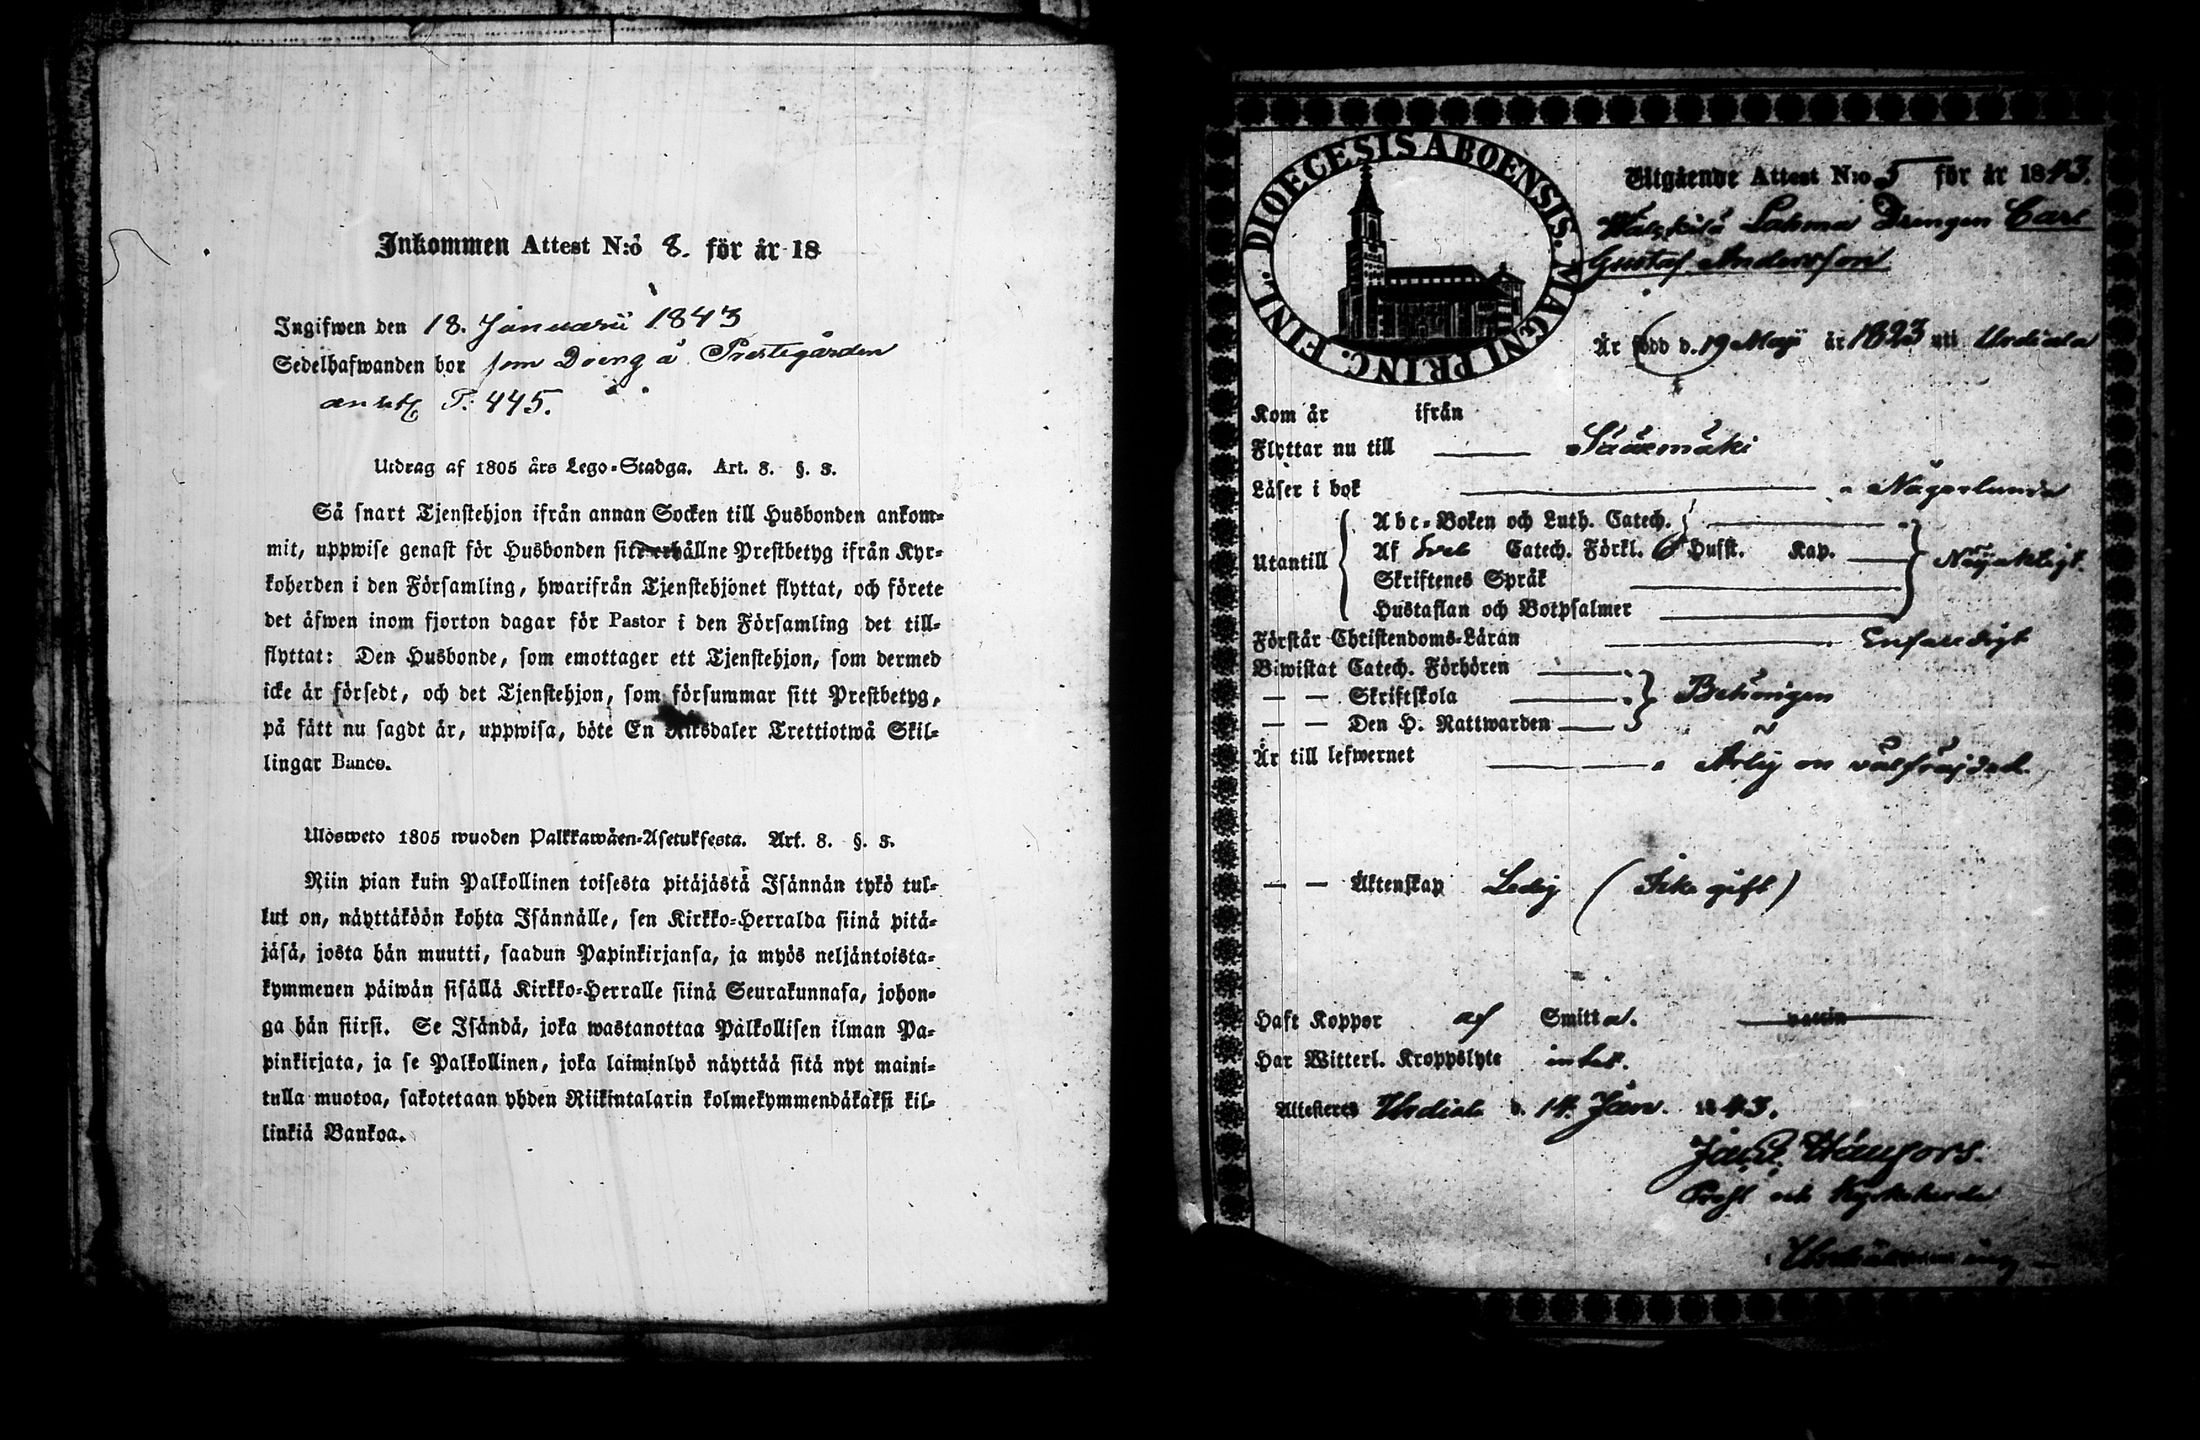 Inkommen Attest N:o 8. för år 18
Ingifwen den 18. Januarii 1843
Sedelhafwanden bor som Dreng å Prestegården
P. 445.
Utdrag af 1805 års Lego-Stadga. Art. 8. §. 3.
Så snart Tjenstehjon ifrån annan Socken till Husbonden ankom-
mit, uppwise genast för Husbonden sitt erhållne Prestbetyg ifrån Kyr-
koherden i den Församling, hwarifrån Tjenstehjonet flyttat, och förete
det äfwen inom fjorton dagar för Pastor i den Församling det till-
flyttat: Den Husbonde, som emottager ett Tjenstehjon, som dermed
icke är försedt, och det Tjenstehjon, som försummar sitt Prestbetyg,
på sätt nu sagdt är, uppwisa, böte En Riksdaler Trettiotwå Skil-
lingar Banco.
Ulosweto 1805 wuoden Palkkawäen-Asetuksesta. Art. 8. §. 3.
Niin pian kuin Palkollinen toisesta pitäjästä Isännän tykö tul-
lut on, näyttäköön kohta Isännälle, sen Kirkko-Herralda siinä pitä-
jäsä, josta hän muutti, saadun Papinkirjansa, ja myös neljäntoista-
kymmenen päiwän sisällä Kirkko-Herralle siinä Seurakunnasa, johon-
ga hän siirsi. Se Isändä, joka wastanottaa Palkollisen ilman Pa-
pinkirjata, ja se Palkollinen, joka laiminlyö näyttää sitä nyt maini-
tulla muotoa, sakotetaan yhden Riikintalarin kolmekymmendäkaksi kil-
linkiä Bankoa.
DIOECESIS ABOENSIS. MAGNI PRINC. FINL.
Utgående Attest N:o 5 för år 1843.
Lahma Drengen Carl
Gustaf Andersson
Är född d. 19 Maji år 1823 uti Urdiala
Kom år ifrån
Flyttar nu till Sääxmäki
Läser i bok Någorlunda
Abc-Boken och Luth. Catech.
Utantill Af Sveb Catech. Förkl. Husst. Kap. Nöjaktigt
Skriftenes Språk
Hustaflan och Botpsalmer
Förstår Christendoms-Läran Enfaldigt
Biwistat Catech. Förhören
— — Skriftskola Behörigen
— — Den H. Nattwarden
Är till lefwernet Ärlig oh välfräjdad.
— — Äktenskap Ledig (Icke gift)
Haft Koppor af Smitta. vaccin
Har Witterl. Kroppslyte intet.
Attesteres Urdiala d. 14. Jan. 1843.
Prost och Kyrkoherde